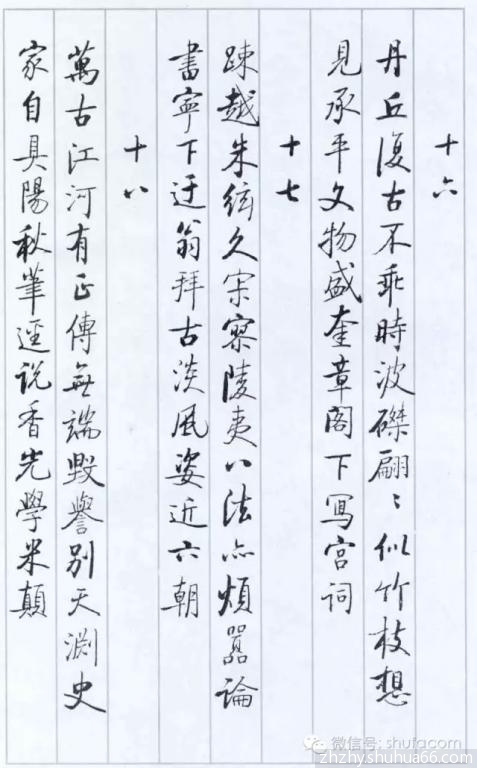 十六
丹丘復古不乖時波磔翩〻似竹枝想
見承平文物盛奎章閣下寫宮詞
十七
疎越朱絃久寂寥陵夷八法亦煩囂論
書寧下迂翁拜古淡風姿近六朝
十八
萬古江河有正傳無端毀譽別天淵史
家自具陽秋筆逕说香光學米顛
微信号: shufacom
zhzhy.shuhua66.com